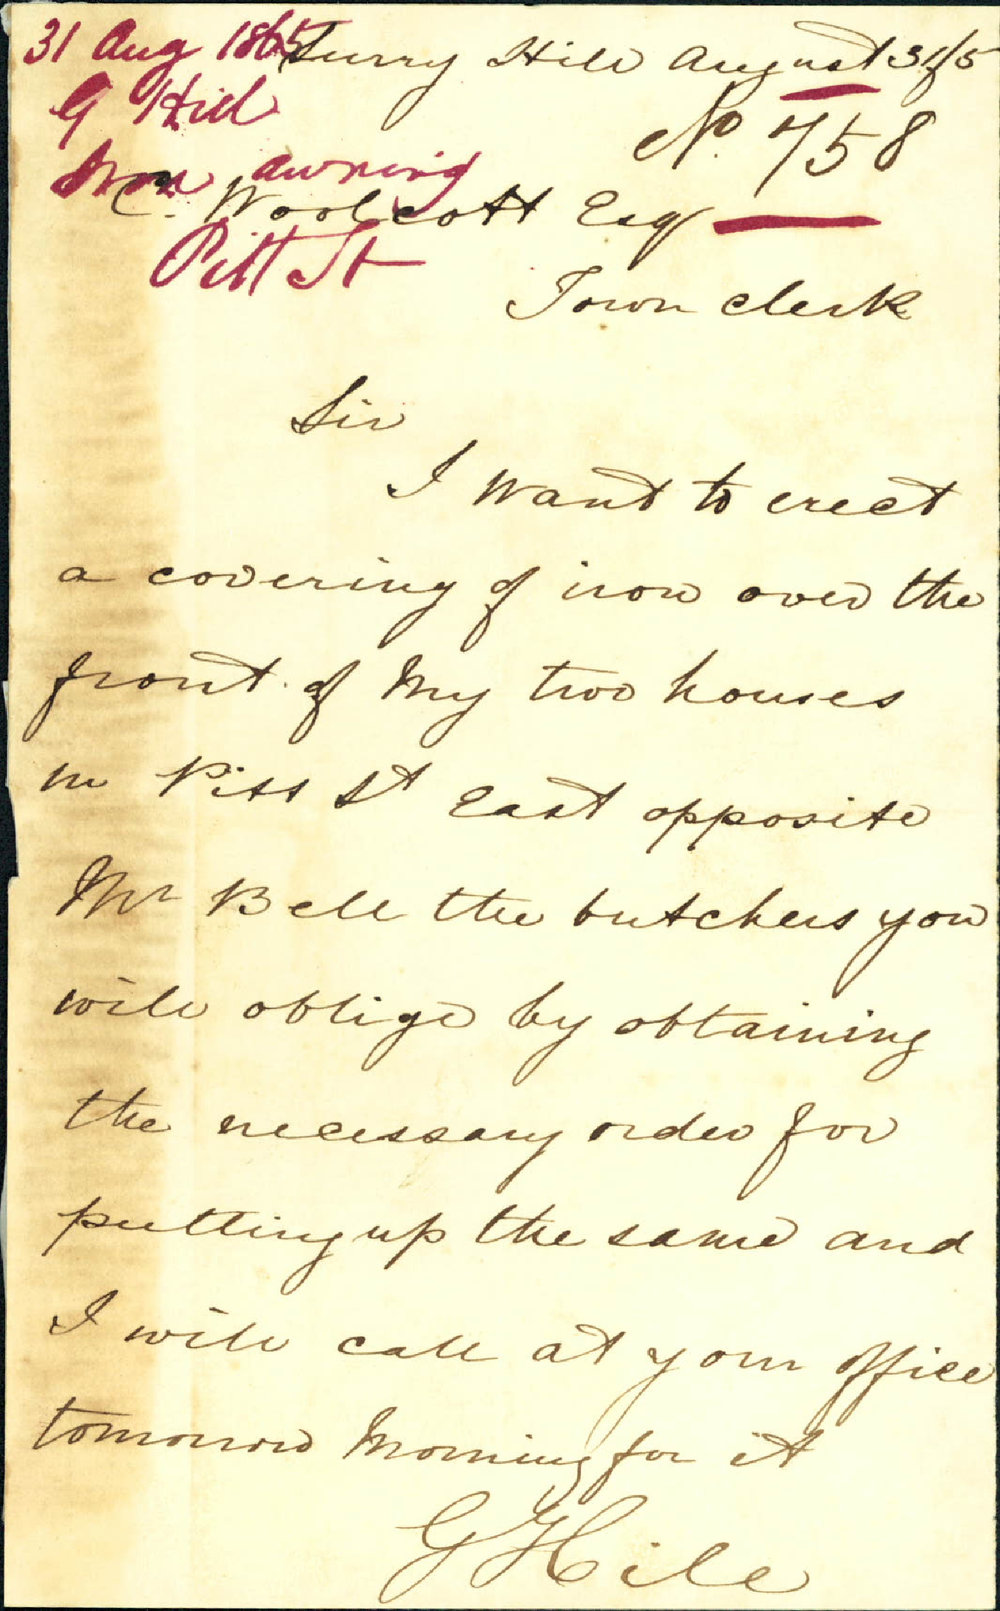 31 Aug 1865
G Hill
Iron awning
Pitt St
Surry Hill August 31/65
No. 758
C. Woolcott Esq
Town Clerk
Sir
I want to erect
a covering of iron over the
front of My two houses
in Pitt St East opposite
Mr Bell the butchers you
will oblige by obtaining
the necessary order for
putting up the same and
I will call at your office
tomorrow Morning for it
G Hill